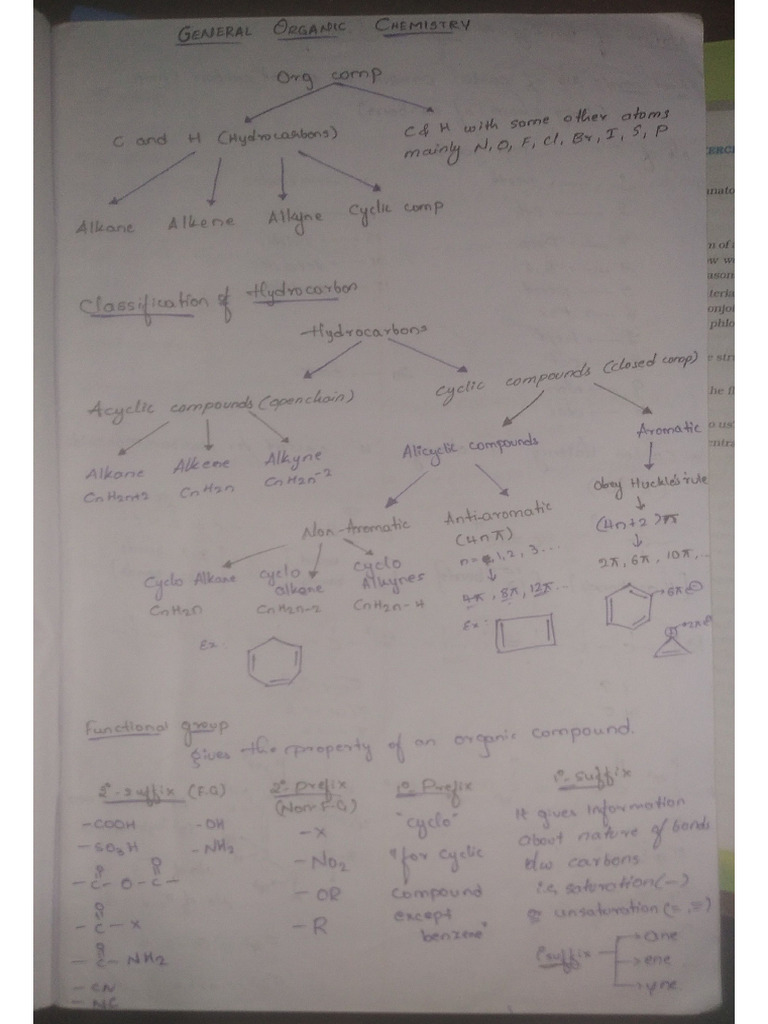 GENERAL ORGANIC CHEMISTRY
Org comp
C and H (Hydrocarbons)
C & H with some other atoms
mainly N, O, F, Cl, Br, I, S, P
Alkane Alkene Alkyne Cyclic comp
Classification of Hydrocarbon
Hydrocarbons
Acyclic compounds (openchain)
Cyclic compounds (closed comp)
Alkane Alkene Alkyne
CnH2n+2 CnH2n CnH2n-2
Alicyclic compounds
Aromatic
obey Huckle's rule
(4n+2)π
2π, 6π, 10π, ..
Non-Aromatic
Anti-aromatic
(4nπ)
n = 1, 2, 3 ...
4π, 8π, 12π ...
Ex:
Cyclo Alkane
CnH2n
cyclo
alkene
CnH2n-2
cyclo
Alkynes
CnH2n-4
Ex:
6πe⊖
2πe
Functional group
gives the property of an organic compound.
2°-suffix (F.G)
-COOH -OH
-SO3H -NH2
O O
-C-O-C-
O
-C-X
O
-C-NH2
-CN
-NC
2°-Prefix
(Non-F.G)
-X
-NO2
-OR
-R
1° Prefix
"cyclo"
for cyclic
compound
except
benzene"
1°-suffix
It gives Information
about nature of bonds
b/w carbons
i.e, saturation(-)
& unsaturation(=, ≡)
1°suffix
ane
ene
yne